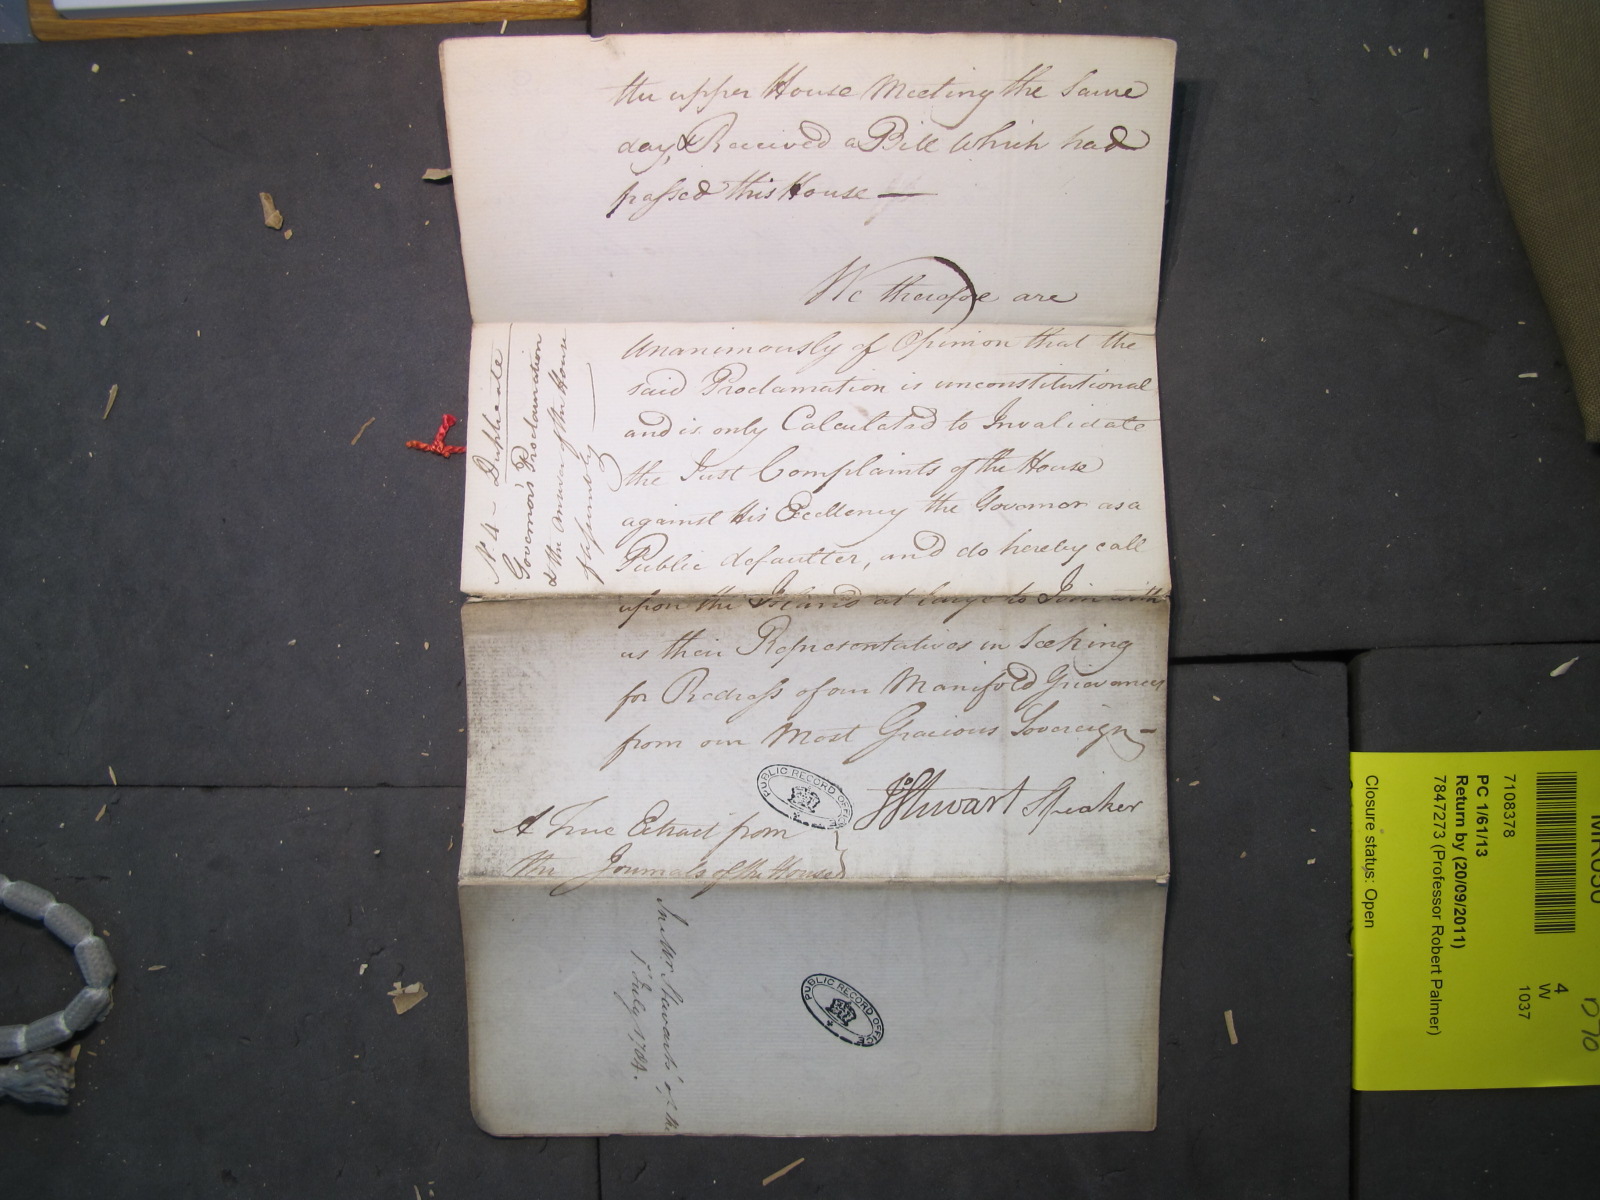 the upper House Meeting the Same
day, & Received a Bill Which had
passed this House —
We therefore are
Unanimously of Opinion that the
said Proclamation is unconstitutional
and is only Calculated to Invalidate
the Just Complaints of the House
against His Excellency the Governor as a
Public defaulter, and do hereby call
upon the Island at large to Join with
us their Representatives in Seeking
for Redress of our Manifold Grievances
from our Most Gracious Sovereign —
J Stuwart Speaker
A True Extract from
the Journals of the House
N.º 4 - Duplicate
Governor's Proclamation
& the Answer of the House
of Assembly
In Mr Stewart's of the
1st July 1784.
PUBLIC RECORD OFFICE
PUBLIC RECORD OFFICE
4
W
1037
7108378
PC 1/61/13
Return by (20/09/2011)
7847273 (Professor Robert Palmer)
Closure status: Open